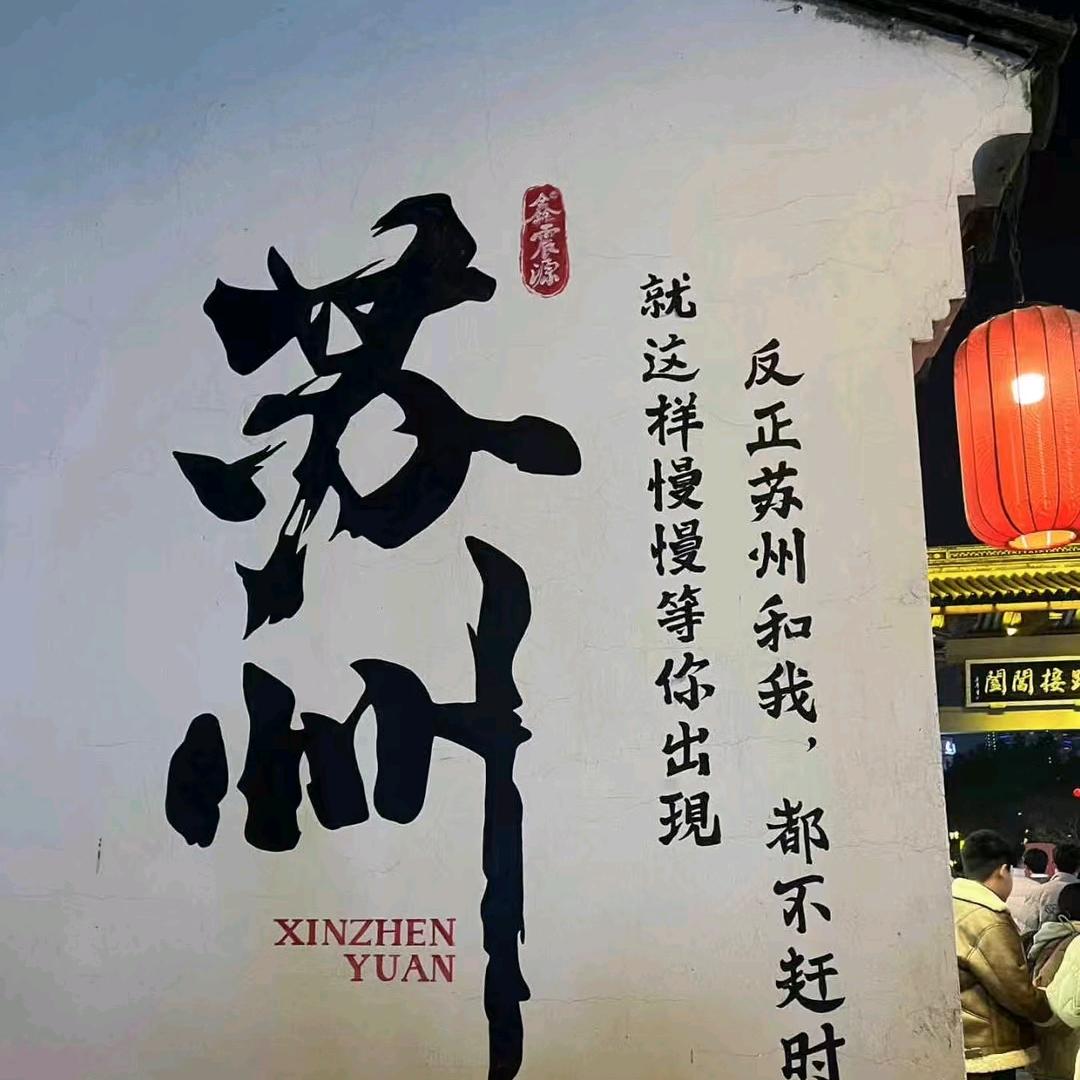 苏州
鑫震源
就这样慢慢等你出現
反正苏州和我，都不赶时
XINZHEN
YUAN
接閶闔